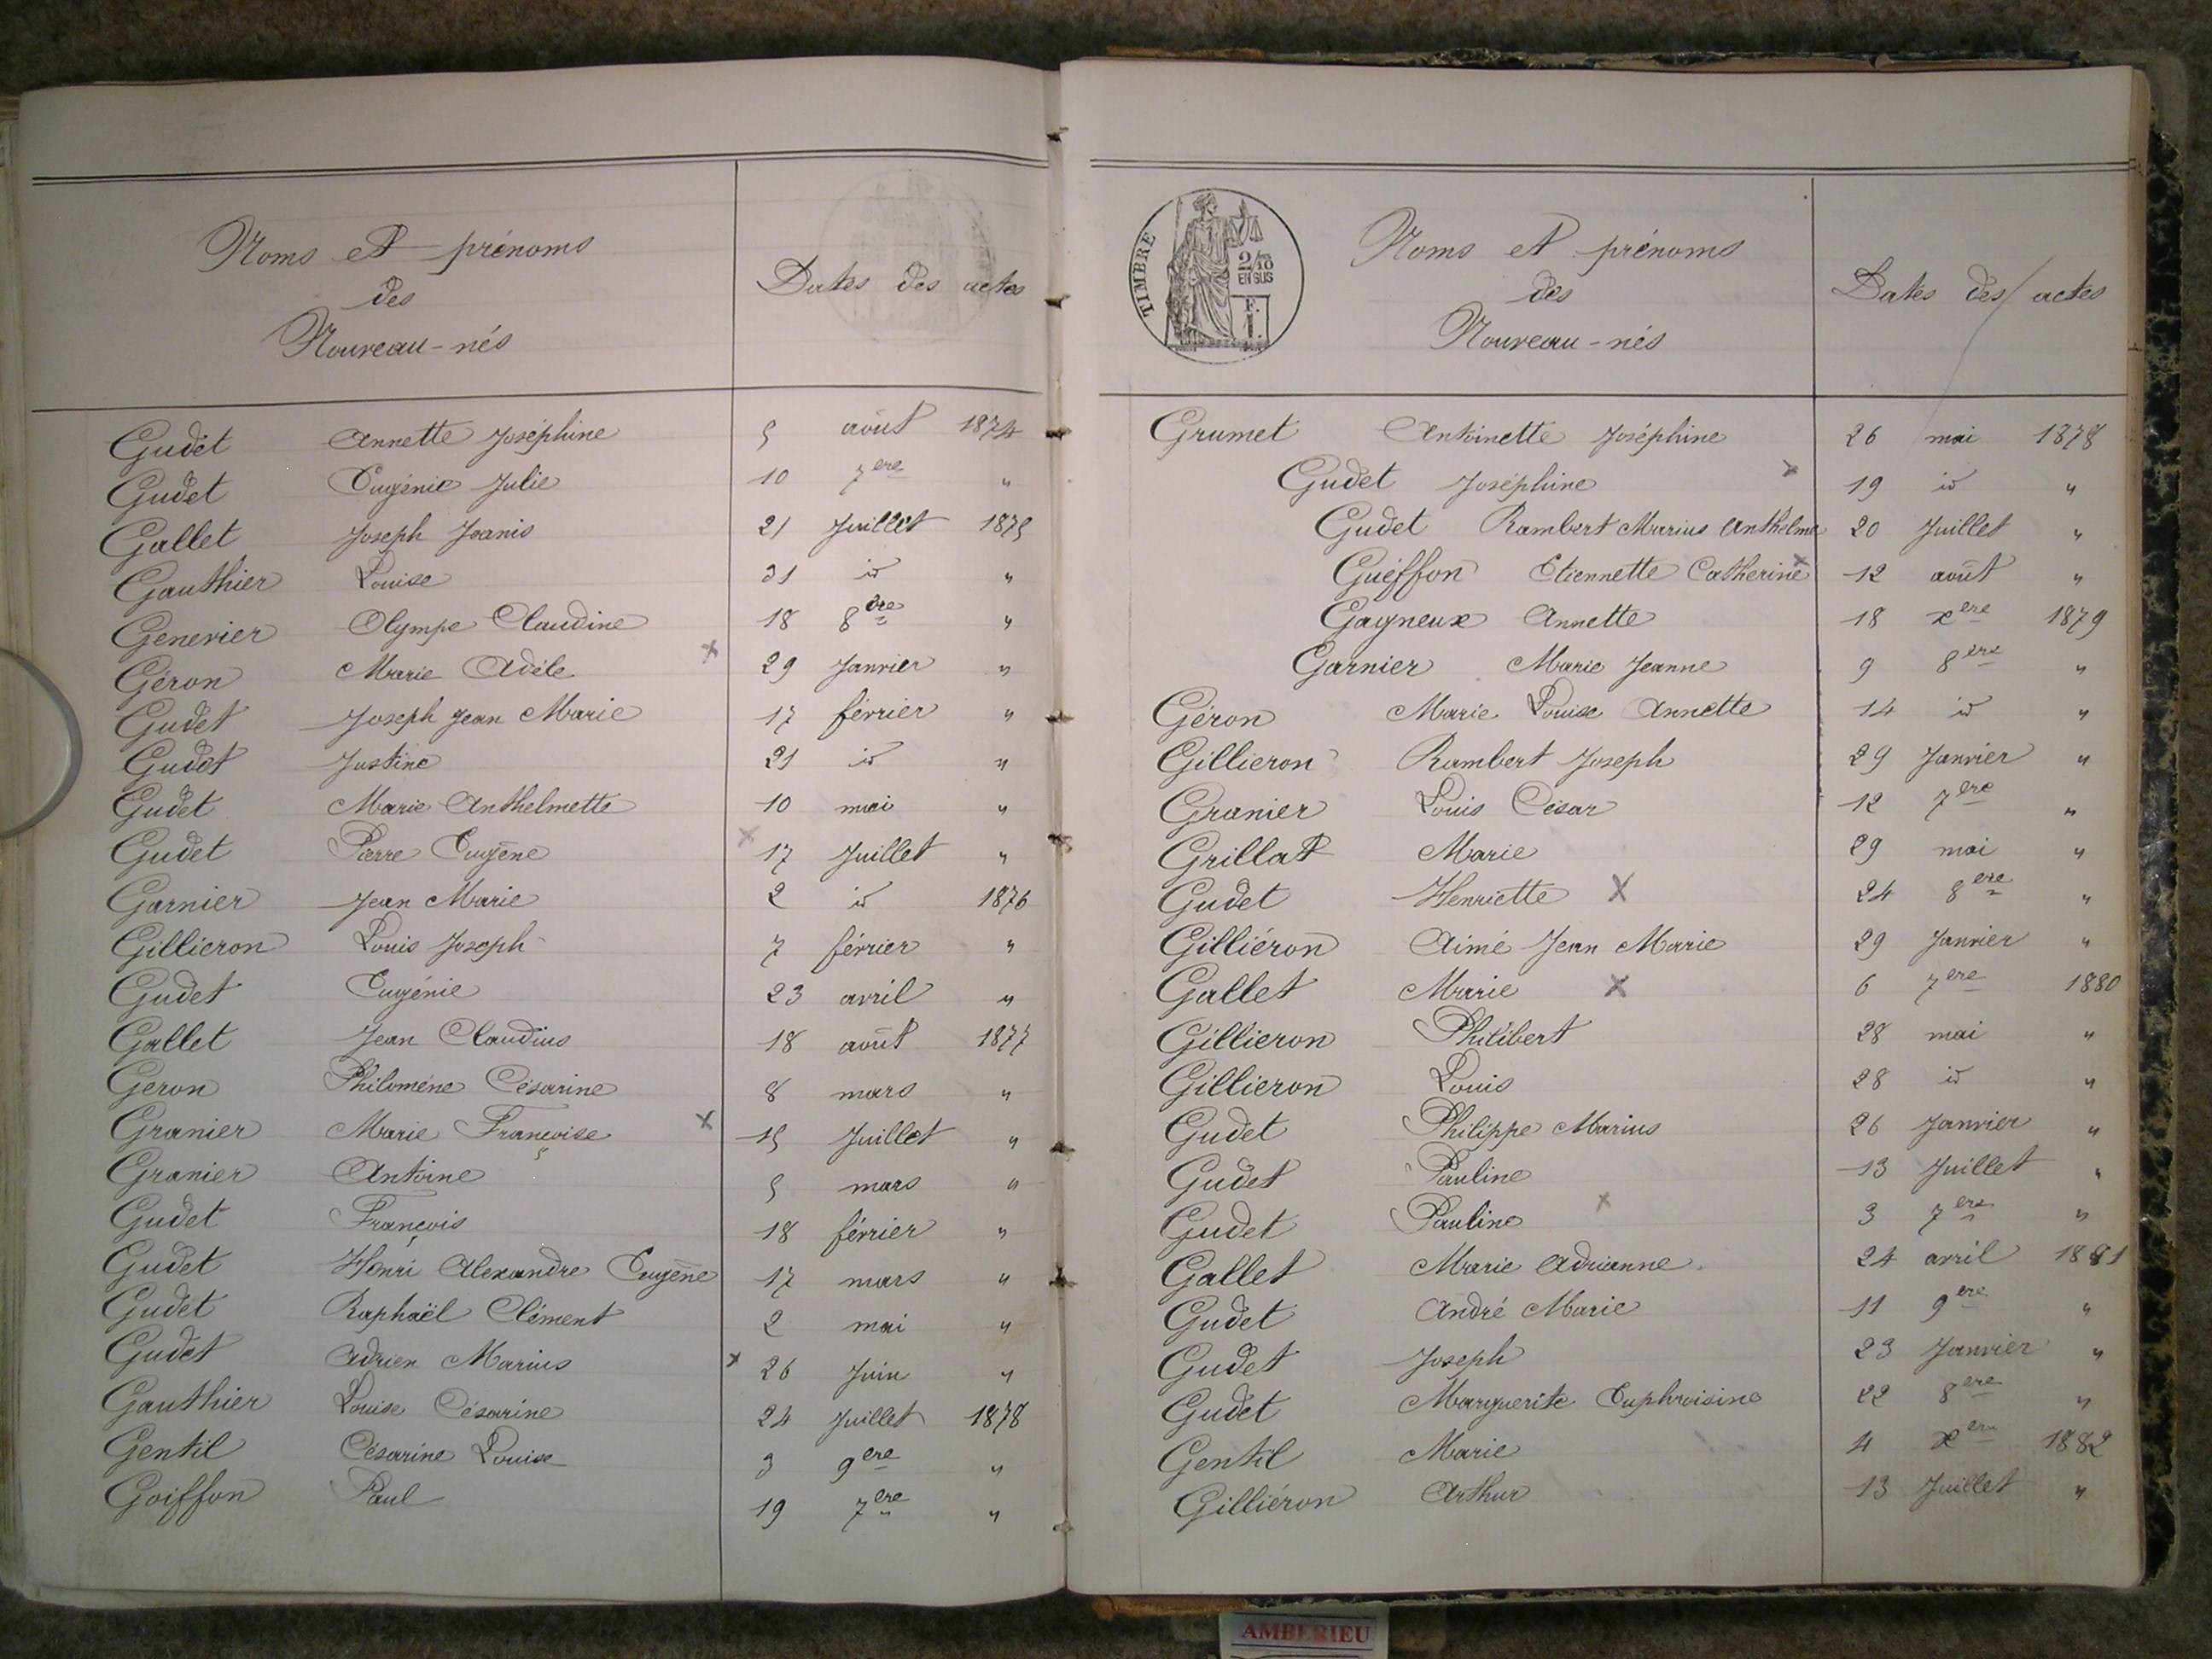 Noms et prénoms
des
Nouveau-nés
Dates des actes
Gudet Annette Joséphine 5 août 1874
Gudet Eugénie Julie 10 7ere "
Gallet Joseph Joanis 21 Juillet 1875
Gauthier Louise 31 id "
Genevier Olympe Claudine 18 8bre "
Géron Marie Adèle x 29 Janvier "
Gudet Joseph Jean Marie 17 février "
Gudet Justine 21 id "
Gudet Marie Anthelmette 10 mai "
Gudet Pierre Eugène x 17 Juillet "
Garnier Jean Marie 2 id 1876
Gillieron Louis Joseph 7 février "
Gudet Eugénie 23 avril "
Gallet Jean Claudius 18 août 1877
Geron Philomène Césarine 8 mars "
Granier Marie Françoise x 15 Juillet "
Granier Antoine 5 mars "
Gudet François 18 février "
Gudet Henri Alexandre Eugène 17 mars "
Gudet Raphaël Clément 2 mai "
Gudet Adrien Marius x 26 Juin "
Gauthier Louise Césarine 24 Juillet 1878
Gentil Césarine Louise 3 9ere "
Goiffon Paul 19 7ere "
TIMBRE
2/10
EN SUS
F.
1.
Noms et prénoms
des
Nouveau-nés
Dates des actes
Grumet Antoinette Joséphine 26 mai 1878
Gudet Joséphine x 19 id "
Gudet Rambert Marius Anthelme 20 Juillet "
Guéffon Etiennette Catherine x 12 août "
Gagneux Annette 18 xere 1879
Garnier Marie Jeanne 9 8ere "
Géron Marie Louise Annette 14 id "
Gillieron Rambert Joseph 29 Janvier "
Granier Louis César 12 7ere "
Grillat Marie 29 mai "
Gudet Henriette X 24 8ere "
Gilliéron Aimé Jean Marie 29 Janvier "
Gallet Marie X 6 7ere 1880
Gillieron Philibert 28 mai "
Gillieron Louis 28 id "
Gudet Philippe Marius 26 Janvier "
Gudet Pauline 13 Juillet "
Gudet Pauline x 3 7ere "
Gallet Marie Adrianne 24 avril 1881
Gudet André Marie 11 9ere "
Gudet Joseph 23 Janvier "
Gudet Marguerite Euphroisine 22 8ere "
Gentil Marie 4 xere 1882
Gilliéron Arthur 13 Juillet "
AMBERIEU